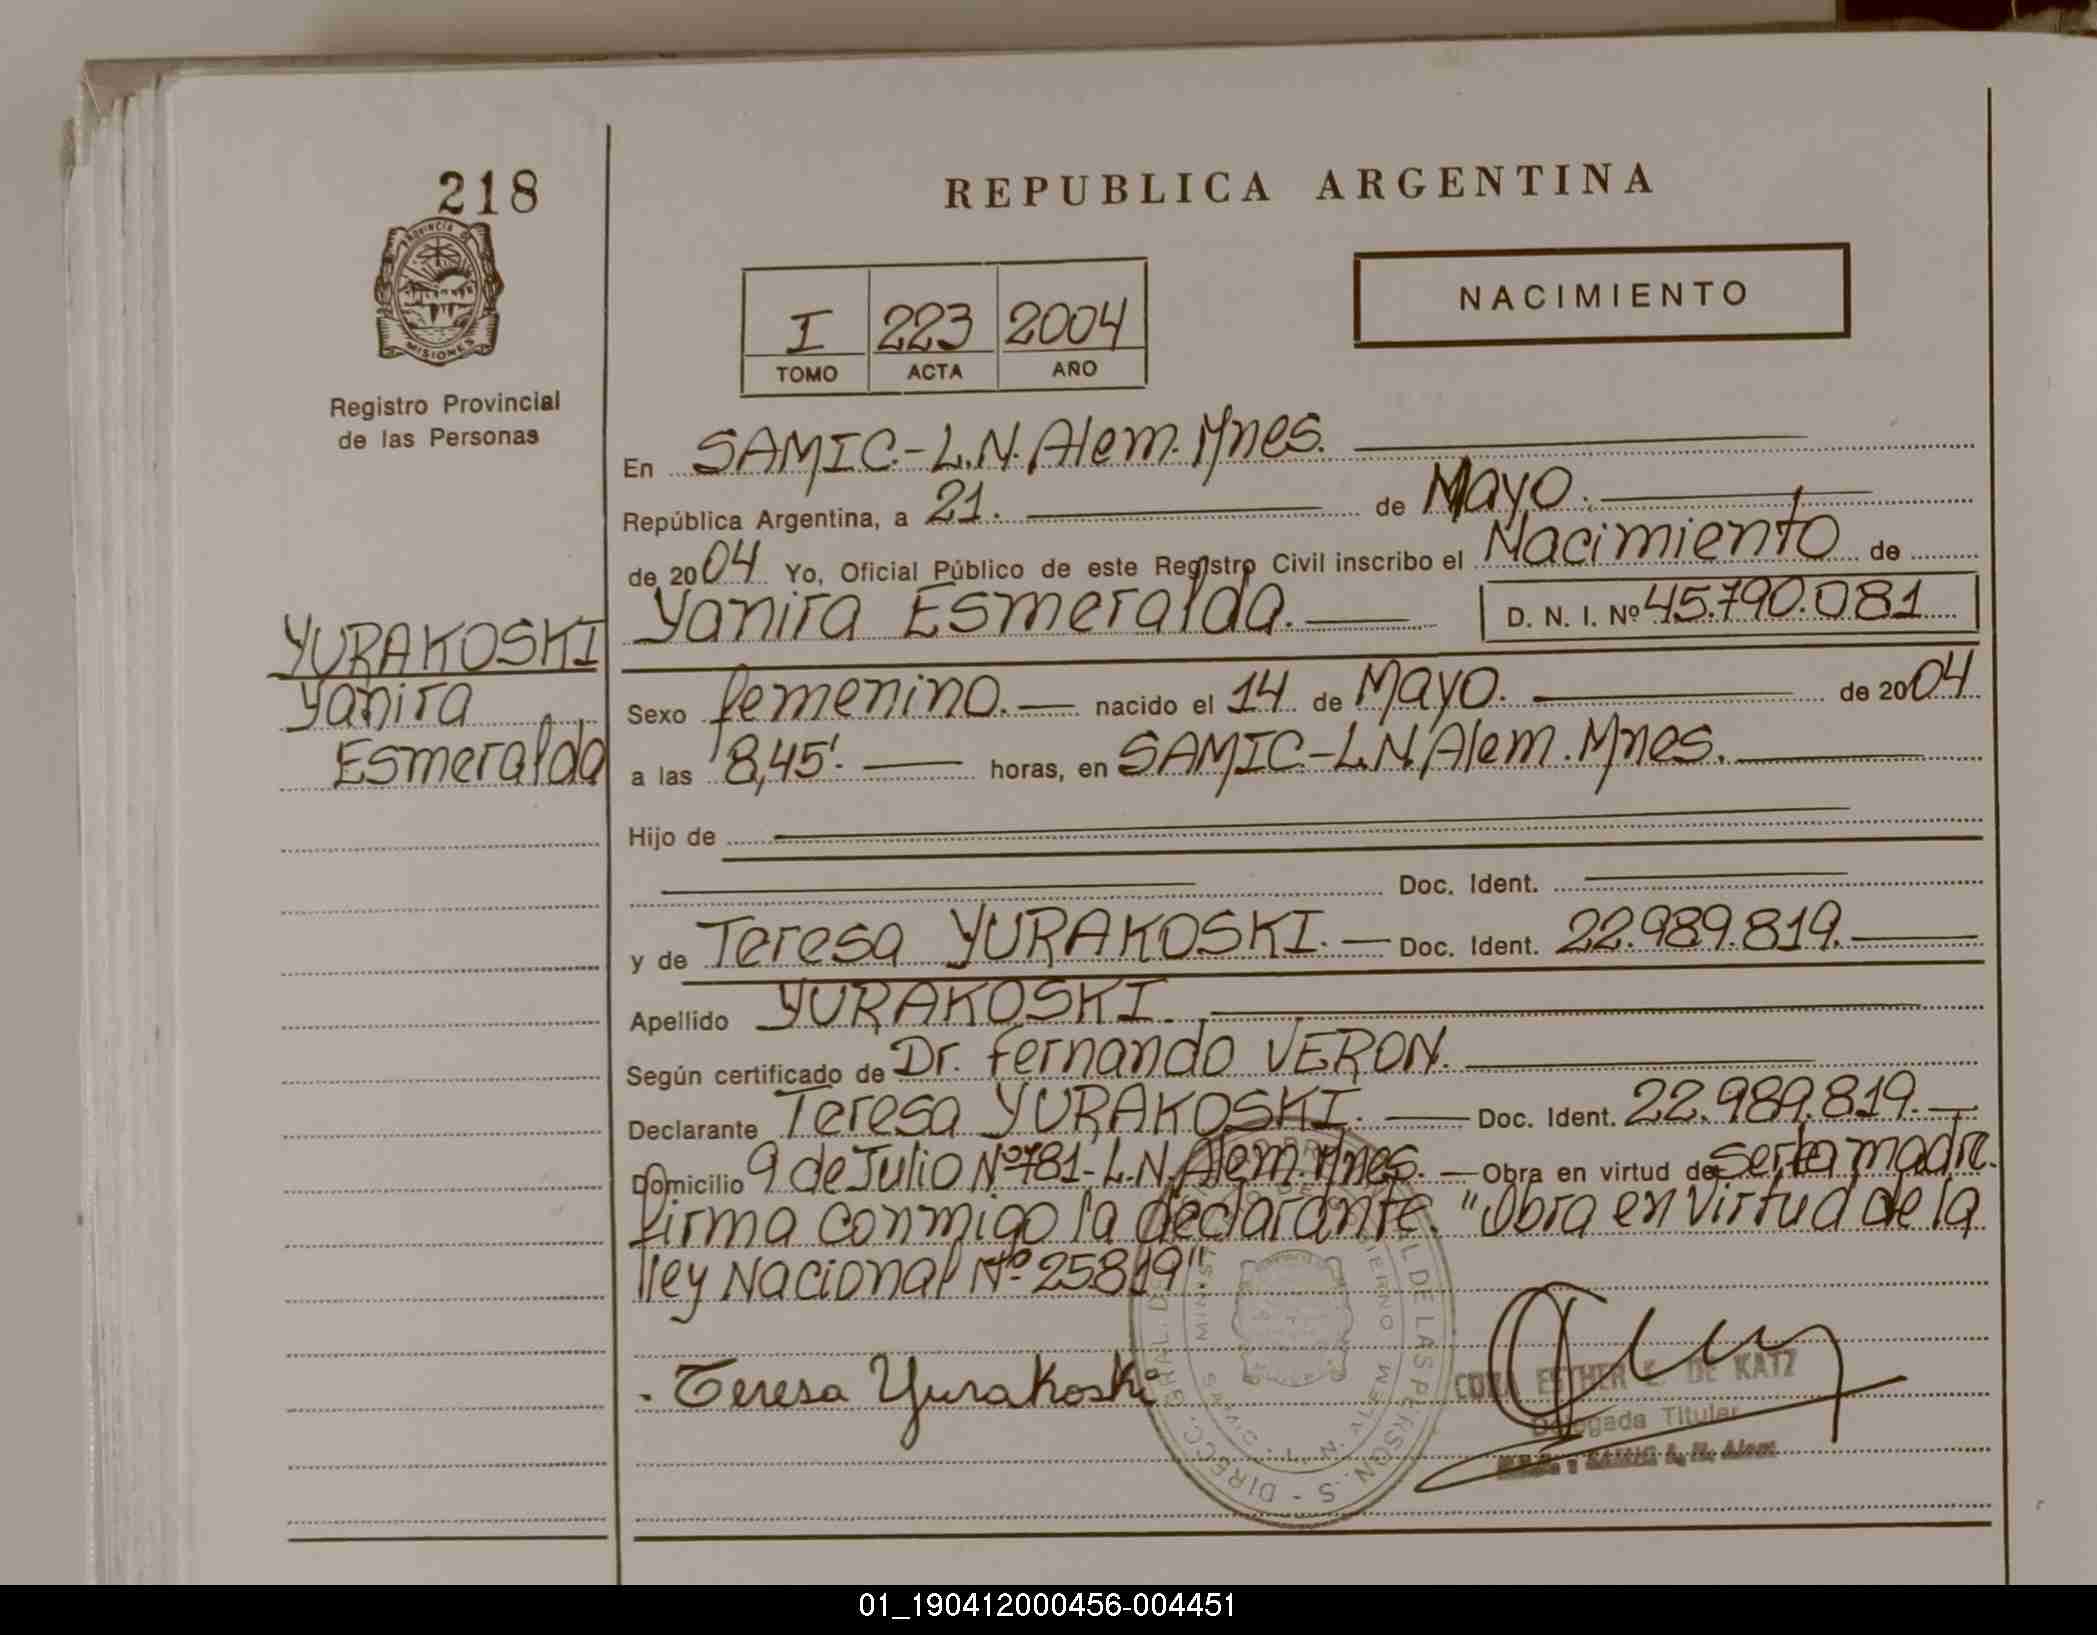 218
PROVINCIA D
MISIONES
Registro Provincial
de las Personas
YURAKOSKI
Yanira
Esmeralda
REPUBLICA ARGENTINA
I 223 2004
TOMO ACTA AÑO
NACIMIENTO
En SAMIC.-L.N.Alem.Mnes.
República Argentina, a 21. de Mayo.
de 2004 Yo, Oficial Público de este Registro Civil inscribo el Nacimiento de
Yanira Esmeralda. D. N. I. Nº 45.790.081
Sexo femenino. nacido el 14 de Mayo. de 2004
a las 8,45'. horas, en SAMIC-L.N.Alem.Mnes.
Hijo de
Doc. Ident.
y de Teresa YURAKOSKI. Doc. Ident. 22.989.819.
Apellido YURAKOSKI.
Según certificado de Dr. Fernando VERON.
Declarante Teresa YURAKOSKI. Doc. Ident. 22.989.819.
Domicilio 9 de Julio Nº781-L.N.Alem.Mnes. Obra en virtud de ser la madre.
firma conmigo la declarante. "Obra en virtud de la
lley Nacional Nº 25819"
Teresa Yurakoski
ESTHER K. DE KATZ
Delegada Titular
SAMIC L. N. Alem
01_190412000456-004451